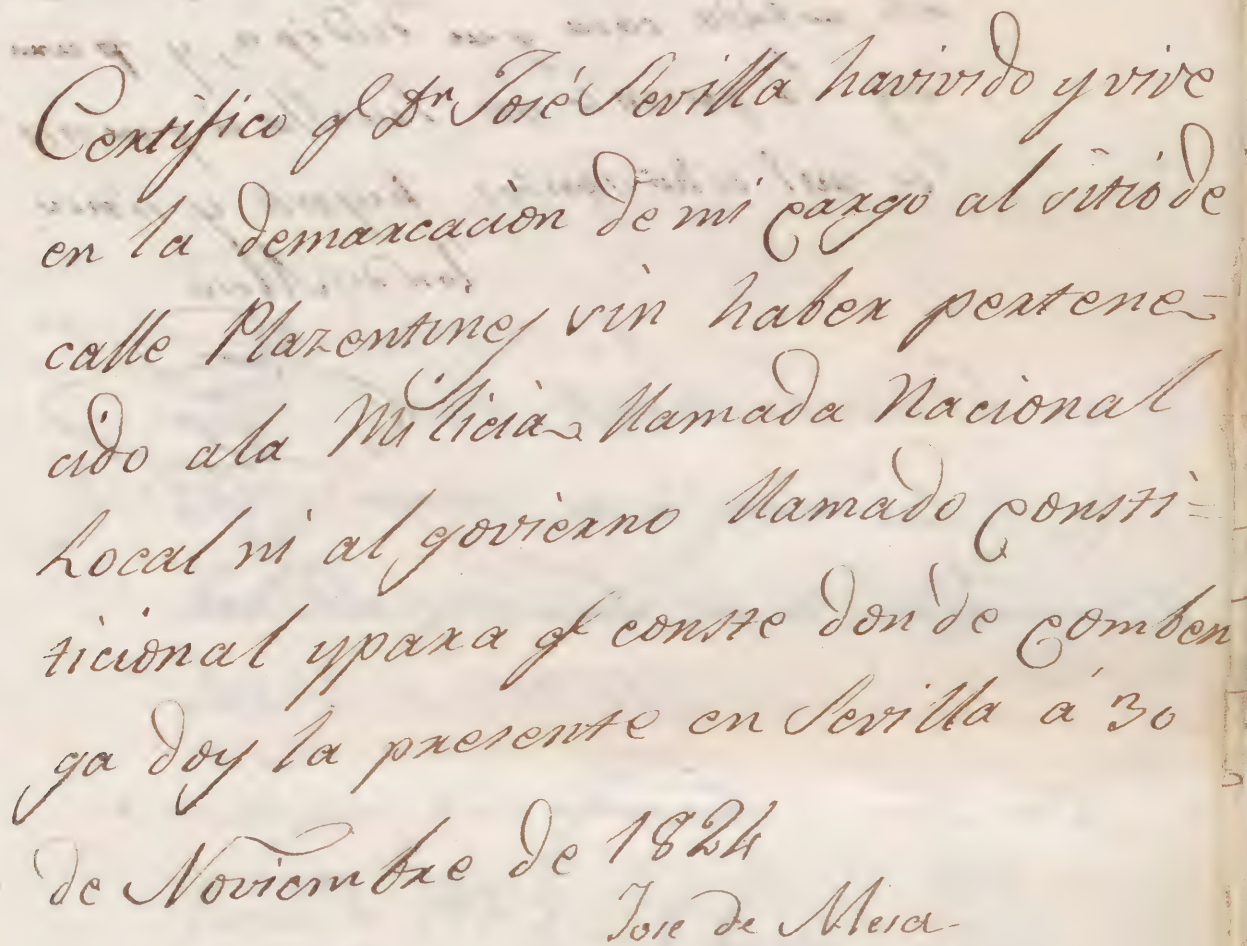 Certifico q.^e D.^n José Sevilla havivido y vive
en la demarcación de mi cargo al sitio de
calle Plazentines sin haber pertene=
cido ala Milicia llamada Nacional
Local ni al govierno llamado consti=
ticional ypara q.^e conste donde comben
ga doy la presente en Sevilla á 30
de Noviembre de 1824
Jose de Mesa